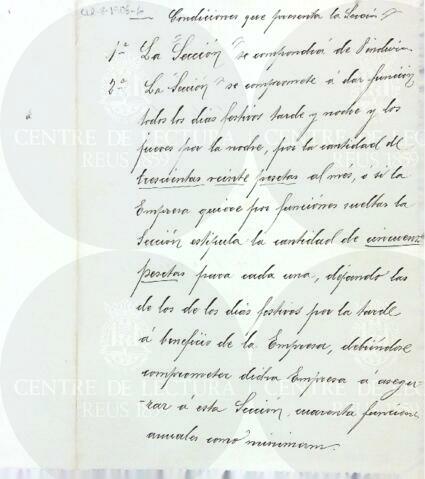 Condiciones que presenta la Sección
1ª La "Sección" se compondrá de
2ª La "Sección" se compromete á dar función
todos los dias festivos tarde y noche y los
jueves por la noche, por la cantidad de
trescientas veinte pesetas al mes, ó si la
Empresa quiere por funciones sueltas la
Sección estipula la cantidad de cincuenta
pesetas para cada una, dejando las
de los de los dias festivos por la tarde
á beneficio de la Empresa, debiéndose
comprometer dicha Empresa á asegu-
-rar á esta Sección, cuarenta funciones
anuales como minimum.
CENTRE DE LECTURA
REUS 1859
CENTRE DE LECTURA
REUS 1859